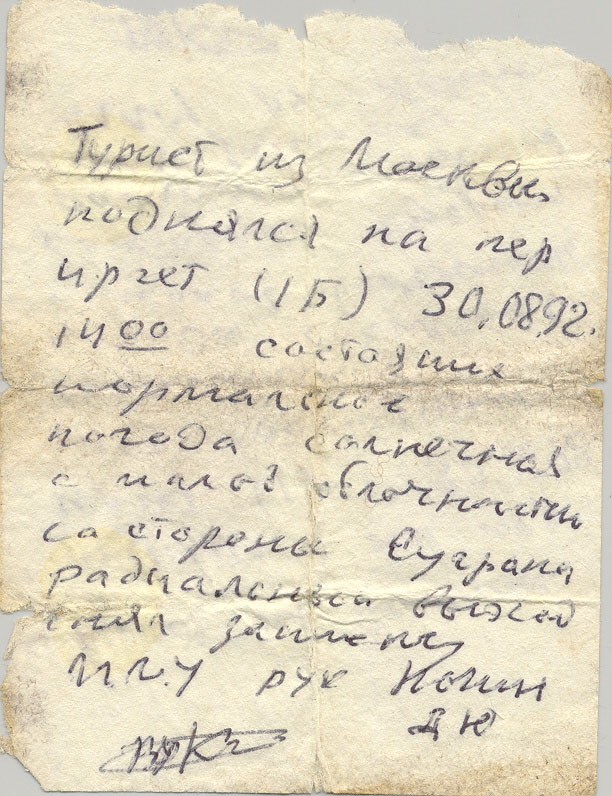 Турист из Москвы
поднялся на пер
Иргет (1Б) 30.08.92.
14 00 состояние
нормальное
погода солнечная
с малой облачностью
со стороны Суграна
радиальный выход
снял записку
рук Конин
ДЮ